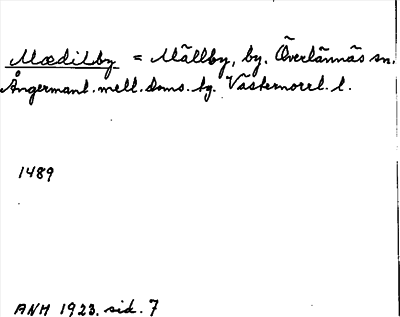 Mædilby = Mällby, by. Överlännäs sn.
Ångermanl. mell. doms. hg. Västernorrl. l.
1489
ANH 1923. sid. 7